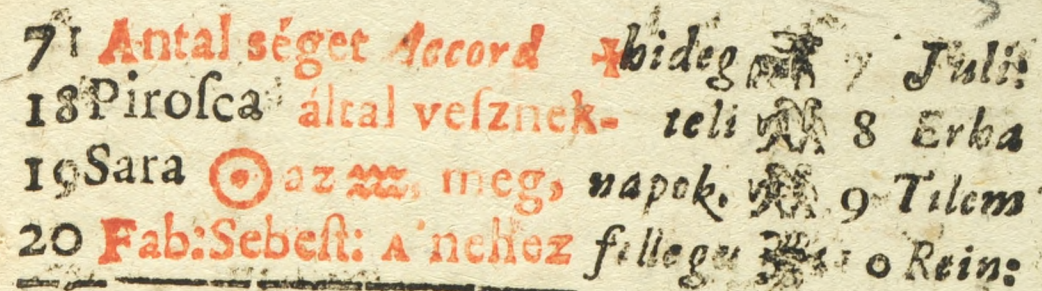 71 Antal séget Accord hideg 7 Juli:
18 Piroſca által veſznek- teli 8 Erha
19 Sara ☉ az ♒, meg, napok, 9 Tilem
20 Fab:Sebeſt: A'nehez 0 Rein: